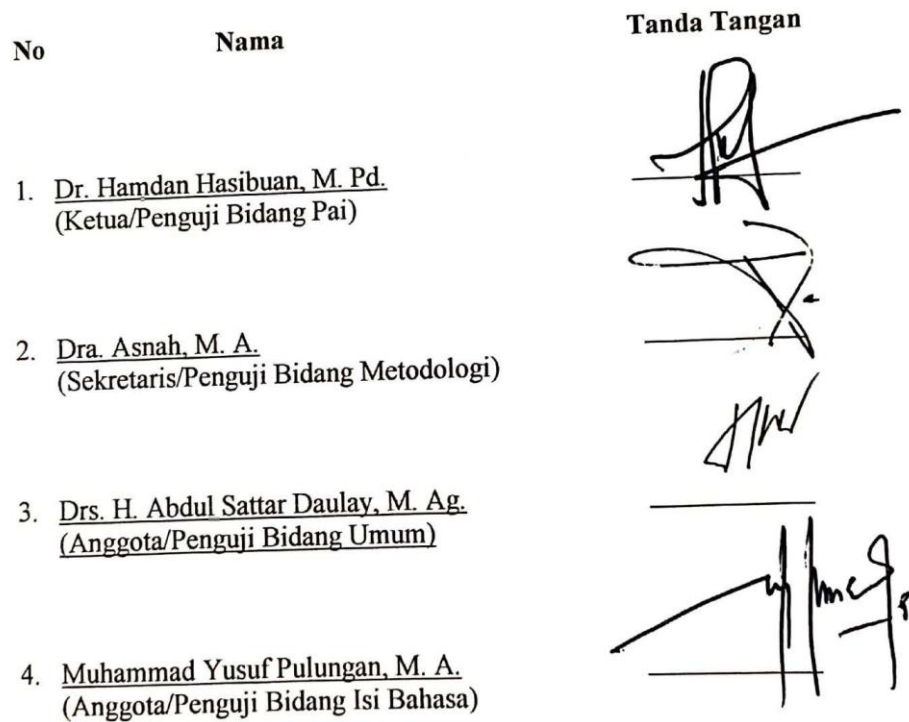 No Nama Tanda Tangan
1. Dr. Hamdan Hasibuan, M. Pd.
(Ketua/Penguji Bidang Pai)
2. Dra. Asnah, M. A.
(Sekretaris/Penguji Bidang Metodologi)
3. Drs. H. Abdul Sattar Daulay, M. Ag.
(Anggota/Penguji Bidang Umum)
4. Muhammad Yusuf Pulungan, M. A.
(Anggota/Penguji Bidang Isi Bahasa)